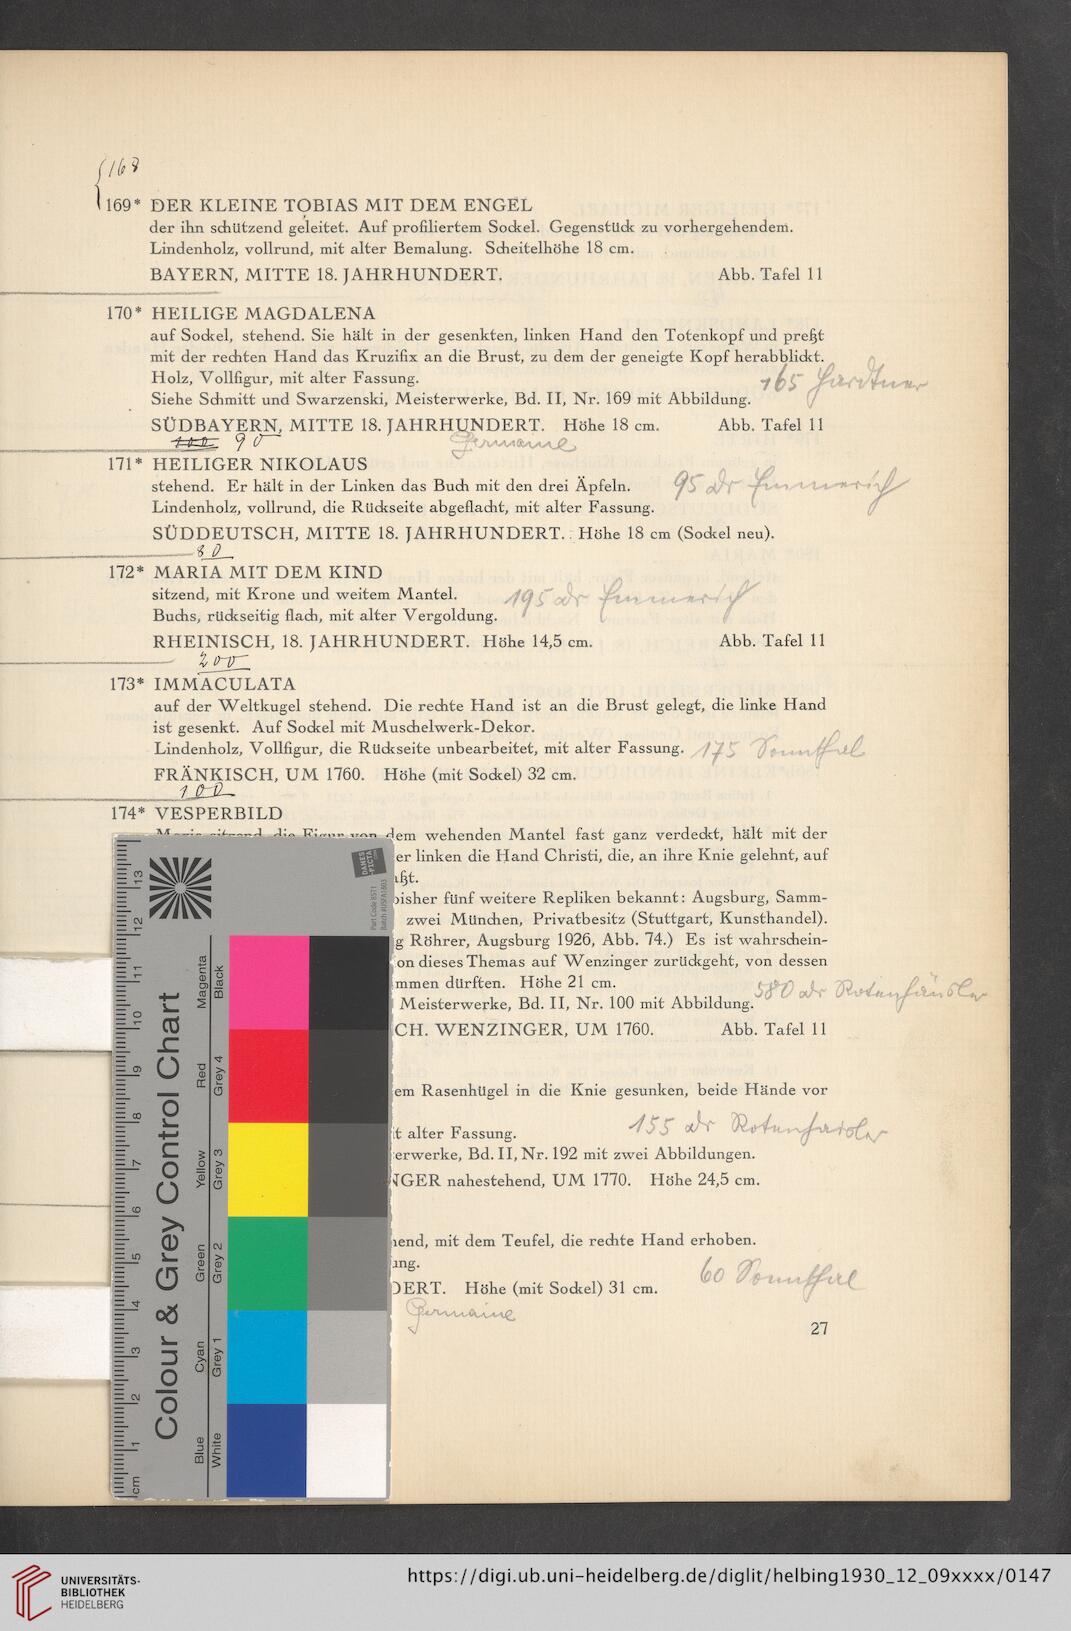 {168
169* DER KLEINE TOBIAS MIT DEM ENGEL
der ihn schützend geleitet. Auf profiliertem Sockel. Gegenstück zu vorhergehendem.
Lindenholz, vollrund, mit alter Bemalung. Scheitelhöhe 18 cm.
BAYERN, MITTE 18. JAHRHUNDERT. Abb. Tafel 11
170* HEILIGE MAGDALENA
auf Sockel, stehend. Sie hält in der gesenkten, linken Hand den Totenkopf und preßt
mit der rechten Hand das Kruzifix an die Brust, zu dem der geneigte Kopf herabblickt.
Holz, Vollfigur, mit alter Fassung. 165 Hardtner
Siehe Schmitt und Swarzenski, Meisterwerke, Bd. II, Nr. 169 mit Abbildung.
SÜDBAYERN, MITTE 18. JAHRHUNDERT. Höhe 18 cm. Abb. Tafel 11
100 90 Germaine
171* HEILIGER NIKOLAUS
stehend. Er hält in der Linken das Buch mit den drei Äpfeln. 95 Dr Emmerich
Lindenholz, vollrund, die Rückseite abgeflacht, mit alter Fassung.
SÜDDEUTSCH, MITTE 18. JAHRHUNDERT. Höhe 18 cm (Sockel neu).
80
172* MARIA MIT DEM KIND
sitzend, mit Krone und weitem Mantel. 195 Dr Emmerich
Buchs, rückseitig flach, mit alter Vergoldung.
RHEINISCH, 18. JAHRHUNDERT. Höhe 14,5 cm. Abb. Tafel 11
200
173* IMMACULATA
auf der Weltkugel stehend. Die rechte Hand ist an die Brust gelegt, die linke Hand
ist gesenkt. Auf Sockel mit Muschelwerk-Dekor.
Lindenholz, Vollfigur, die Rückseite unbearbeitet, mit alter Fassung. 175 Sonnthal
FRÄNKISCH, UM 1760. Höhe (mit Sockel) 32 cm.
100
174* VESPERBILD
Maria sitzend, die Figur von dem wehenden Mantel fast ganz verdeckt, hält mit der
er linken die Hand Christi, die, an ihre Knie gelehnt, auf
aßt.
bisher fünf weitere Repliken bekannt: Augsburg, Samm-
zwei München, Privatbesitz (Stuttgart, Kunsthandel).
g Röhrer, Augsburg 1926, Abb. 74.) Es ist wahrschein-
on dieses Themas auf Wenzinger zurückgeht, von dessen
mmen dürften. Höhe 21 cm.
Meisterwerke, Bd. II, Nr. 100 mit Abbildung. 580 Dr Rotenhäusler
CH. WENZINGER, UM 1760. Abb. Tafel 11
em Rasenhügel in die Knie gesunken, beide Hände vor
it alter Fassung. 155 Dr Rotenhäusler
erwerke, Bd. II, Nr. 192 mit zwei Abbildungen.
NGER nahestehend, UM 1770. Höhe 24,5 cm.
hend, mit dem Teufel, die rechte Hand erhoben.
ung.
DERT. Höhe (mit Sockel) 31 cm. 60 Sonnthal
Germaine
27
Colour & Grey Control Chart
DANES PICTA
Part Code BST1
Blue Cyan Green Yellow Red Magenta
White Grey 1 Grey 2 Grey 3 Grey 4 Black
cm 1 2 3 4 5 6 7 8 9 10 11 12 13
UNIVERSITÄTS-
BIBLIOTHEK
HEIDELBERG
https://digi.ub.uni-heidelberg.de/diglit/helbing1930_12_09xxxx/0147